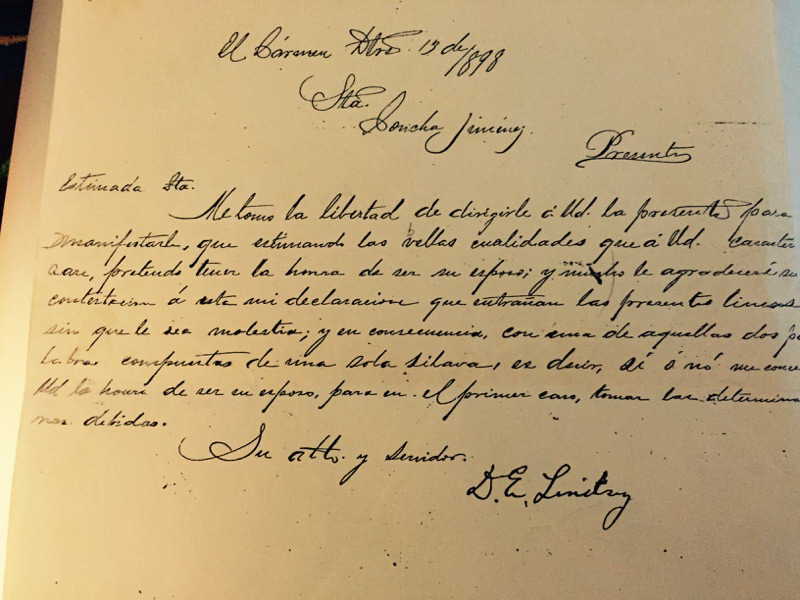 El Cármen Dbre. 13 de /898
Sta.
Concha Jiménez.
Presente
Estimada Sta.
Me tomo la libertad de dirigirle á Ud. la presente para
manifestarle, que estimando las vellas cualidades que á Ud. caracter
izan, pretendo tener la honra de ser su esposo; y mucho le agradeceré su
contestacion á esta mi declaracion que entrañan las presentes lineas
sin que le sea molestia; y en consecuencia, con una de aquellas dos pa
labras compuestas de una sola silava, es decir, sí ó nó me conce
Ud la honra de ser su esposo, para en el primer caso, tomar las determina
nes debidas.
Su atto. y servidor.
D. E.